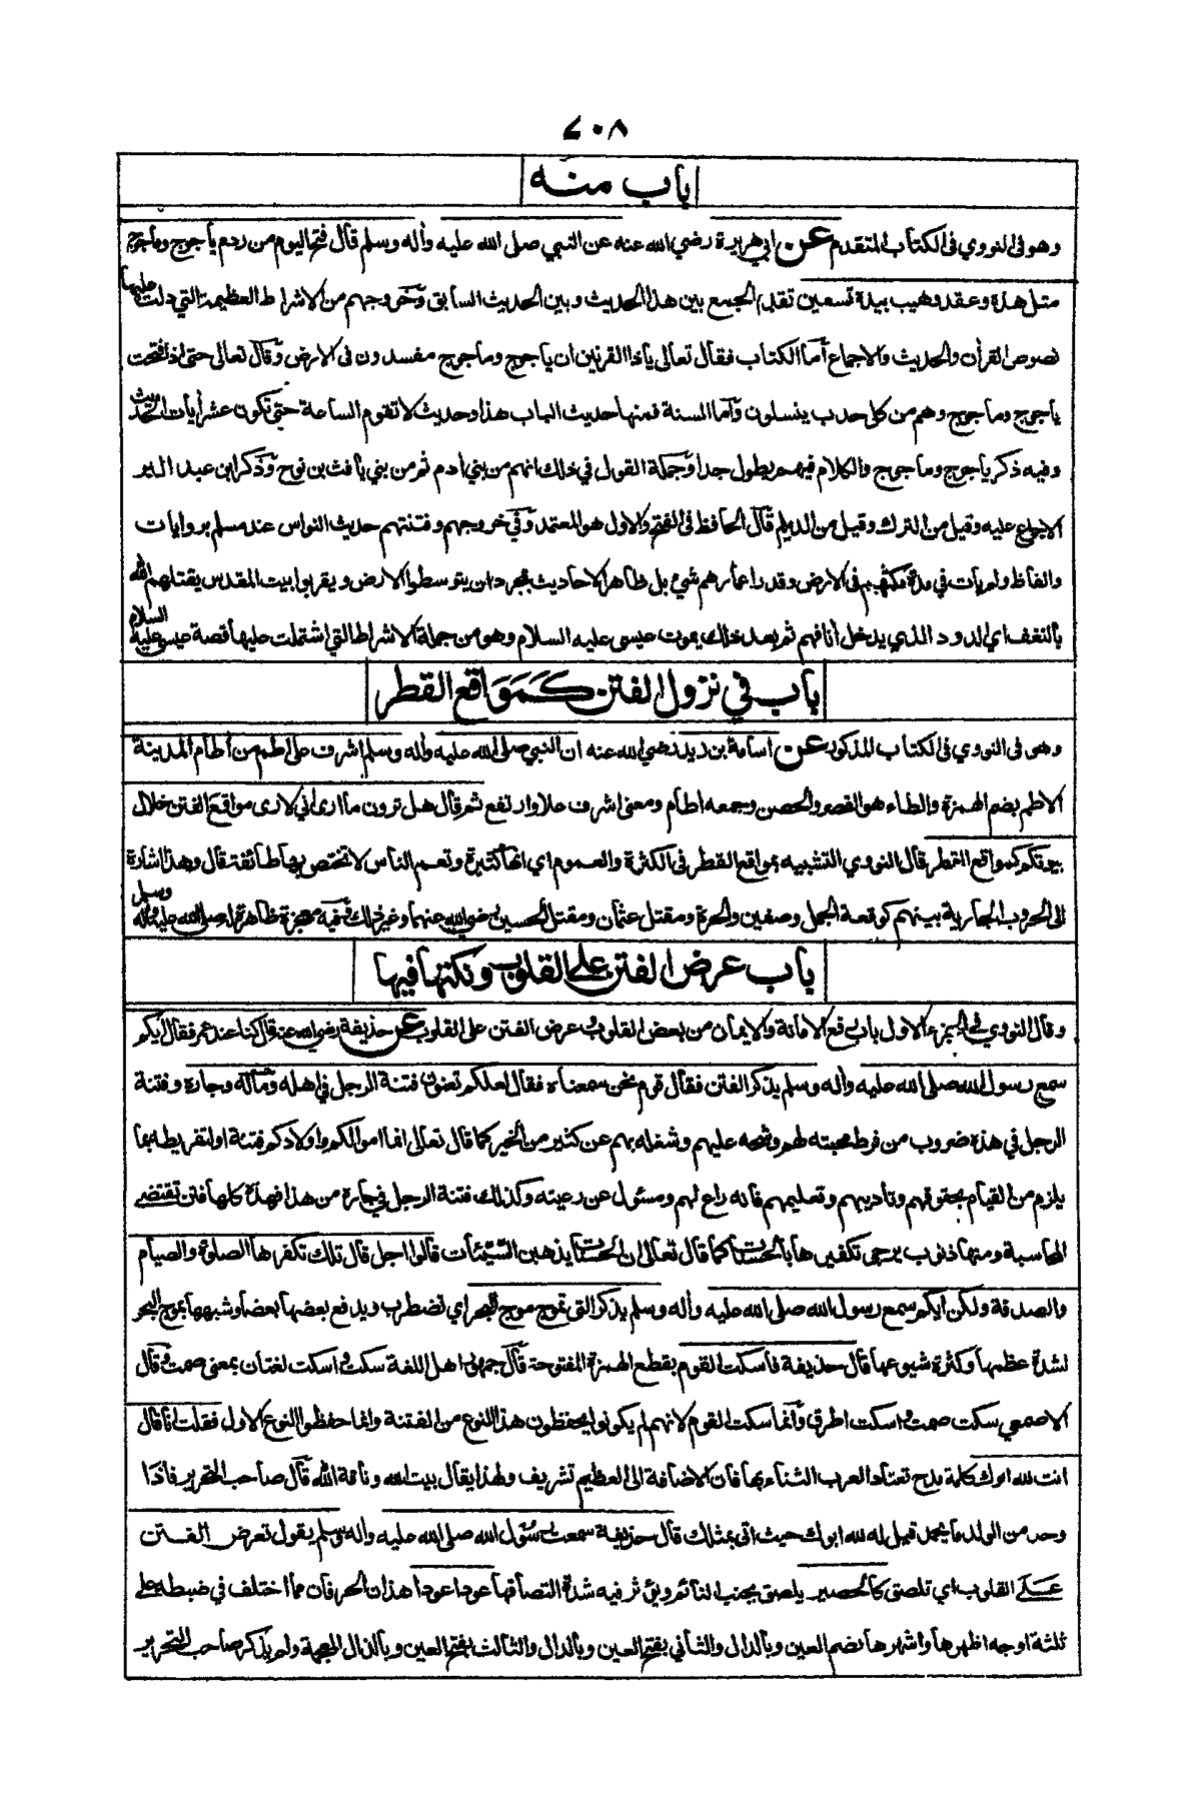 ٧٠٨
باب منه
وهو فى النووي فى الكتاب المتقدم عن ابي هريرة رضي الله عنه عن النبي صلى الله عليه وأله وسلم قال فتح اليوم من ردم يأجوج ومأجوج
مثل هذه وعقد وهيب بيده تسعين تقدم الجمع بين هذا الحديث وبين الحديث السابق وخروجهم من الاشراط العظيمة التي دلت عليها
نصوص القرأن والحديث والاجماع أما الكتاب فقال تعالى ياذا القرنين ان ياجوج وماجوج مفسدون فى الارض وقال تعالى حتى اذا فتحت
يأجوج ومأجوج وهم من كل حدب ينسلون وأما السنة فمنها حديث الباب هذا وحديث لا تقوم الساعة حتى تكون عشر أيات الحديث
وفيه ذكر يأجوج ومأجوج والكلام فيهم يطول جدا وجملة القول في ذلك انهم من بني أدم ثم من بني يأفث بن نوح وذكر ابن عبد البر
الاجماع عليه وقيل من الترك وقيل من الديلم قال الحافظ فى الفتح والاول هو المعتمد وفي خروجهم وفتنتهم حديث النواس عند مسلم بروايات
والفاظ ولم يأت في مدة مكثهم فى الارض وقدر اعمارهم شيء بل ظاهر الاحاديث مجرد ان يتوسطوا الارض ويقربوا بيت المقدس يقتلهم الله
بالنغف اي الدود الذي يدخل أنافهم ثم بعد ذلك يموت عيسى عليه السلام وهو من جملة الاشراط التي اشتملت عليها قصة عيسى عليه السلام
باب في نزول الفتن كمواقع القطر
وهو فى النووي فى الكتاب المذكور عن اسامة بن زيد رضي الله عنه ان النبي صلى الله عليه وأله وسلم اشرف على اطم من أطام المدينة
الاطم بضم الهمزة والطاء هو القصر والحصن وجمعه اطأم ومعنى اشرف علا وارتفع ثم قال هل ترون مأ ارى أني لارى مواقع الفتن خلال
بيوتكم كمواقع القطر قال النووي التشبيه بمواقع القطر فى الكثرة والعموم اي انها كثيرة وتعم الناس لا تختص بها طائفة قال وهذا اشارة
الى الحروب الجارية بينهم كوقعة الجمل وصفين والحرة ومقتل عثمان ومقتل الحسين رضي الله عنهما وغير ذلك وفيه معجزة ظاهرة له صلى الله عليه وأله وسلم
باب عرض الفتن على القلوب ونكتها فيها
وقال النووي في الجزء الاول باب رفع الامانة والايمان من بعض القلوب وعرض الفتن على القلوب عن حذيفة رضي الله عنه قال كنا عند عمر فقال ايكم
سمع رسول الله صلى الله عليه وأله وسلم يذكر الفتن فقال قوم نحن سمعناه فقال لعلكم تعنون فتنة الرجل في اهله وماله وجاره وفتنة
الرجل في هذه ضروب من فرط محبته لهم وشحه عليهم وشغله بهم عن كثير من الخير كما قال تعالى انما اموالكم واولادكم فتنة او لتفريطه بما
يلزم من القيام بحقوقهم وتاديبهم وتعليمهم فانه راع لهم ومسئول عن رعيته وكذلك فتنة الرجل في جاره من هذا فهذه كلها فتن تقتضي
المحاسبة ومنها ذنوب يرجى تكفيرها بالحسنات كما قال تعالى ان الحسنات يذهبن السيئات قالوا اجل قال تلك تكفرها الصلوة والصيام
والصدقة ولكن ايكم سمع رسول الله صلى الله عليه وأله وسلم يذكر التي تموج موج البحر اي تضطرب ويدفع بعضها بعضا وشبهها بموج البحر
لشدة عظمها وكثرة شيوعها قال حذيفة فأسكت القوم بقطع الهمزة المفتوحة قال جمهور اهل اللغة سكت واسكت لغتان بمعنى صمت وقال
الاصمعي سكت صمت واسكت اطرق وانما سكت القوم لانهم لم يكونوا يحفظون هذا النوع من الفتنة وانما حفظوا النوع الاول فقلت انا قال
انت لله ابوك كلمة مدح تعتاد العرب الثناء بها فان الاضافة الى العظيم تشريف ولهذا يقال بيت الله وناقة الله قال صاحب التحرير فاذا
وجد من الولد ما يحمد قيل له لله ابوك حيث اتى بمثلك قال حذيفة سمعت رسول الله صلى الله عليه وأله وسلم يقول تعرض الفتن
على القلوب اي تلصق كالحصير يلصق بجنب النائم ويؤثر فيه شدة التصاقها عودا عودا هذان الحرفان مما اختلف في ضبطه على
ثلثة اوجه اظهرها واشهرها بضم العين وبالدال والثاني بفتح العين وبالدال والثالث بفتح العين وبالذال المعجمة ولم يذكر صاحب التحرير